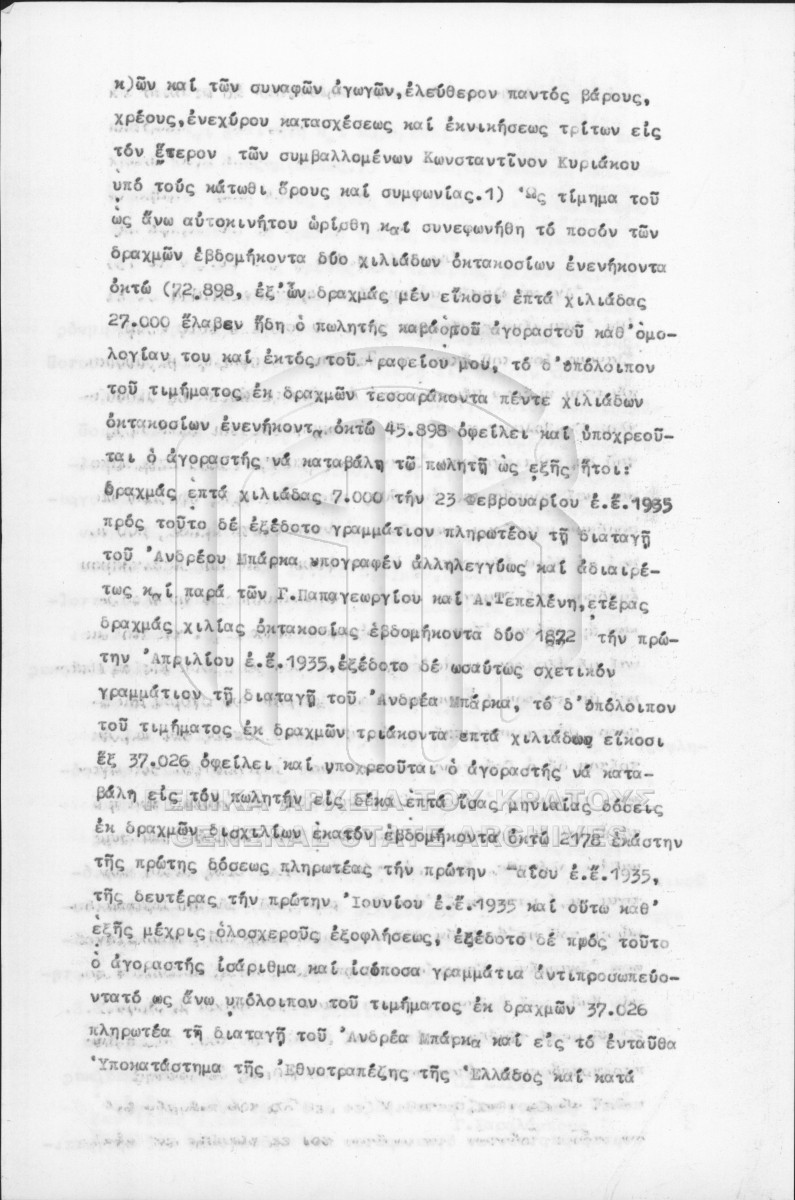 κ)ῶν καί τῶν συναφῶν ἀγωγῶν,ἐλεύθερον παντός βάρους,
χρέους,ἐνεχύρου κατασχέσεως καί ἐκνικήσεως τρίτων εἰς
τόν ἕτερον τῶν συμβαλλομένων Κωνσταντῖνον Κυριάκου
ὑπό τούς κάτωθι ὅρους καί συμφωνίας.1) Ὡς τίμημα τοῦ
ὡς ἄνω αὐτοκινήτου ὡρίσθη καί συνεφωνήθη τό ποσόν τῶν
δραχμῶν ἑβδομήκοντα δύο χιλιάδων ὀκτακοσίων ἐνενήκοντα
ὀκτώ (72.898, ἐξ'ὧν δραχμάς μέν εἴκοσι ἑπτά χιλιάδας
27.000 ἔλαβεν ἤδη ὁ πωλητής ἀγοραστοῦ καθ'ὁμο-
λογίαν του καί ἐκτός τοῦ -ραφείου μου, τό δ'ὑπόλοιπον
τοῦ τιμήματος ἐκ δραχμῶν τεσσαράκοντα πέντε χιλιάδων
ὀκτακοσίων ἐνενήκοντα ὀκτώ 45.898 ὀφείλει καί ὑποχρεοῦ-
ται ὁ ἀγοραστής νά καταβάλη τῶ πωλητῆ ὡς ἑξῆς ἤτοι:
δραχμάς ἑπτά χιλιάδας 7.000 τήν 23 Φεβρουαρίου ἐ.ἔ.1935
πρός τοῦτο δέ ἐξέδοτο γραμμάτιον πληρωτέον τῆ διαταγῆ
τοῦ Ἀνδρέου Μπάρκα ὑπογραφέν ἀλληλεγγύως καί ἀδιαιρέ-
τως καί παρά τῶν Γ.Παπαγεωργίου καί Α.Τεπελένη,ετέρας
δραχμάς χιλίας ὀκτακοσίας ἑβδομήκοντα δύο 1872 τήν πρώ-
την Ἀπριλίου ἐ.ἔ.1935,ἐξέδοτο δέ ωσαύτως σχετικόν
γραμμάτιον τῆ διαταγῆ τοῦ Ἀνδρέα Μπάρκα, τό δ'ὑπόλοιπον
τοῦ τιμήματος ἐκ δραχμῶν τριάκοντα επτά χιλιάδων εἴκοσι
ἕξ 37.026 ὀφείλει καί ὑποχρεοῦται ὁ ἀγοραστής νά κατα-
βάλη εἰς τόν πωλητήν εἰς δέκα ἑπτά ἴσας μηνιαίας δόσεις
ἐκ δραχμῶν δισχιλίων ἑκατόν ἑβδομήκοντα ὀκτώ 2178 ἑκάστην
τῆς πρώτης δόσεως πληρωτέας τήν πρώτην Μαΐου ἐ.ἔ.1935,
τῆς δευτέρας τήν πρώτην Ἰουνίου ἐ.ἔ.1935 καί οὕτω καθ'
ἑξῆς μέχρις ὁλοσχεροῦς ἐξοφλήσεως, ἐξέδοτο δέ πρός τοῦτο
ὁ ἀγοραστής ἰσάριθμα καί ἰσόποσα γραμμάτια ἀντιπροσωπεύο-
ντατό ως ἄνω ὑπόλοιπον τοῦ τιμήματος ἐκ δραχμῶν 37.026
πληρωτέα τῆ διαταγῆ τοῦ Ἀνδρέα Μπάρκα καί εἰς τό ἐνταῦθα
Ὑποκατάστημα τῆς Ἐθνοτραπέζης τῆς Ἑλλάδος καί κατά
ΓΕΝΙΚΑ ΑΡΧΕΙΑ ΤΟΥ ΚΡΑΤΟΥΣ
GENERAL STATE ARCHIVES